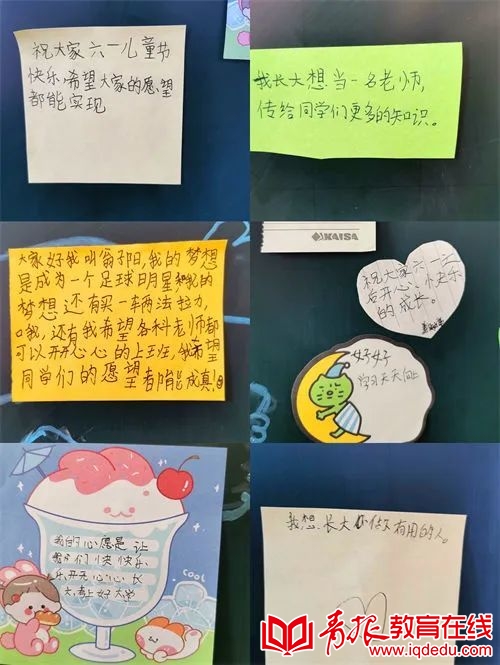 祝大家六一儿童节
快乐,希望大家的愿望
都能实现
我长大想当一名老师,
传给同学们更多的知识。
大家好我叫翁子阳,我的梦想
是成为一个足球明星和我的
梦想还有买一车两法拉力,
哦,还有我希望各科老师都
可以开开心心的上班,我希望
同学们的愿望都能成真!
KAISA
祝大家六一节
后开心、快乐
的成长。
好好
学习天天向上
我的心愿是让
我们快快乐
乐,开开心心长
大,考上好大学
COOL
我想长大做有用的人。
青报教育在线
www.iqdedu.com